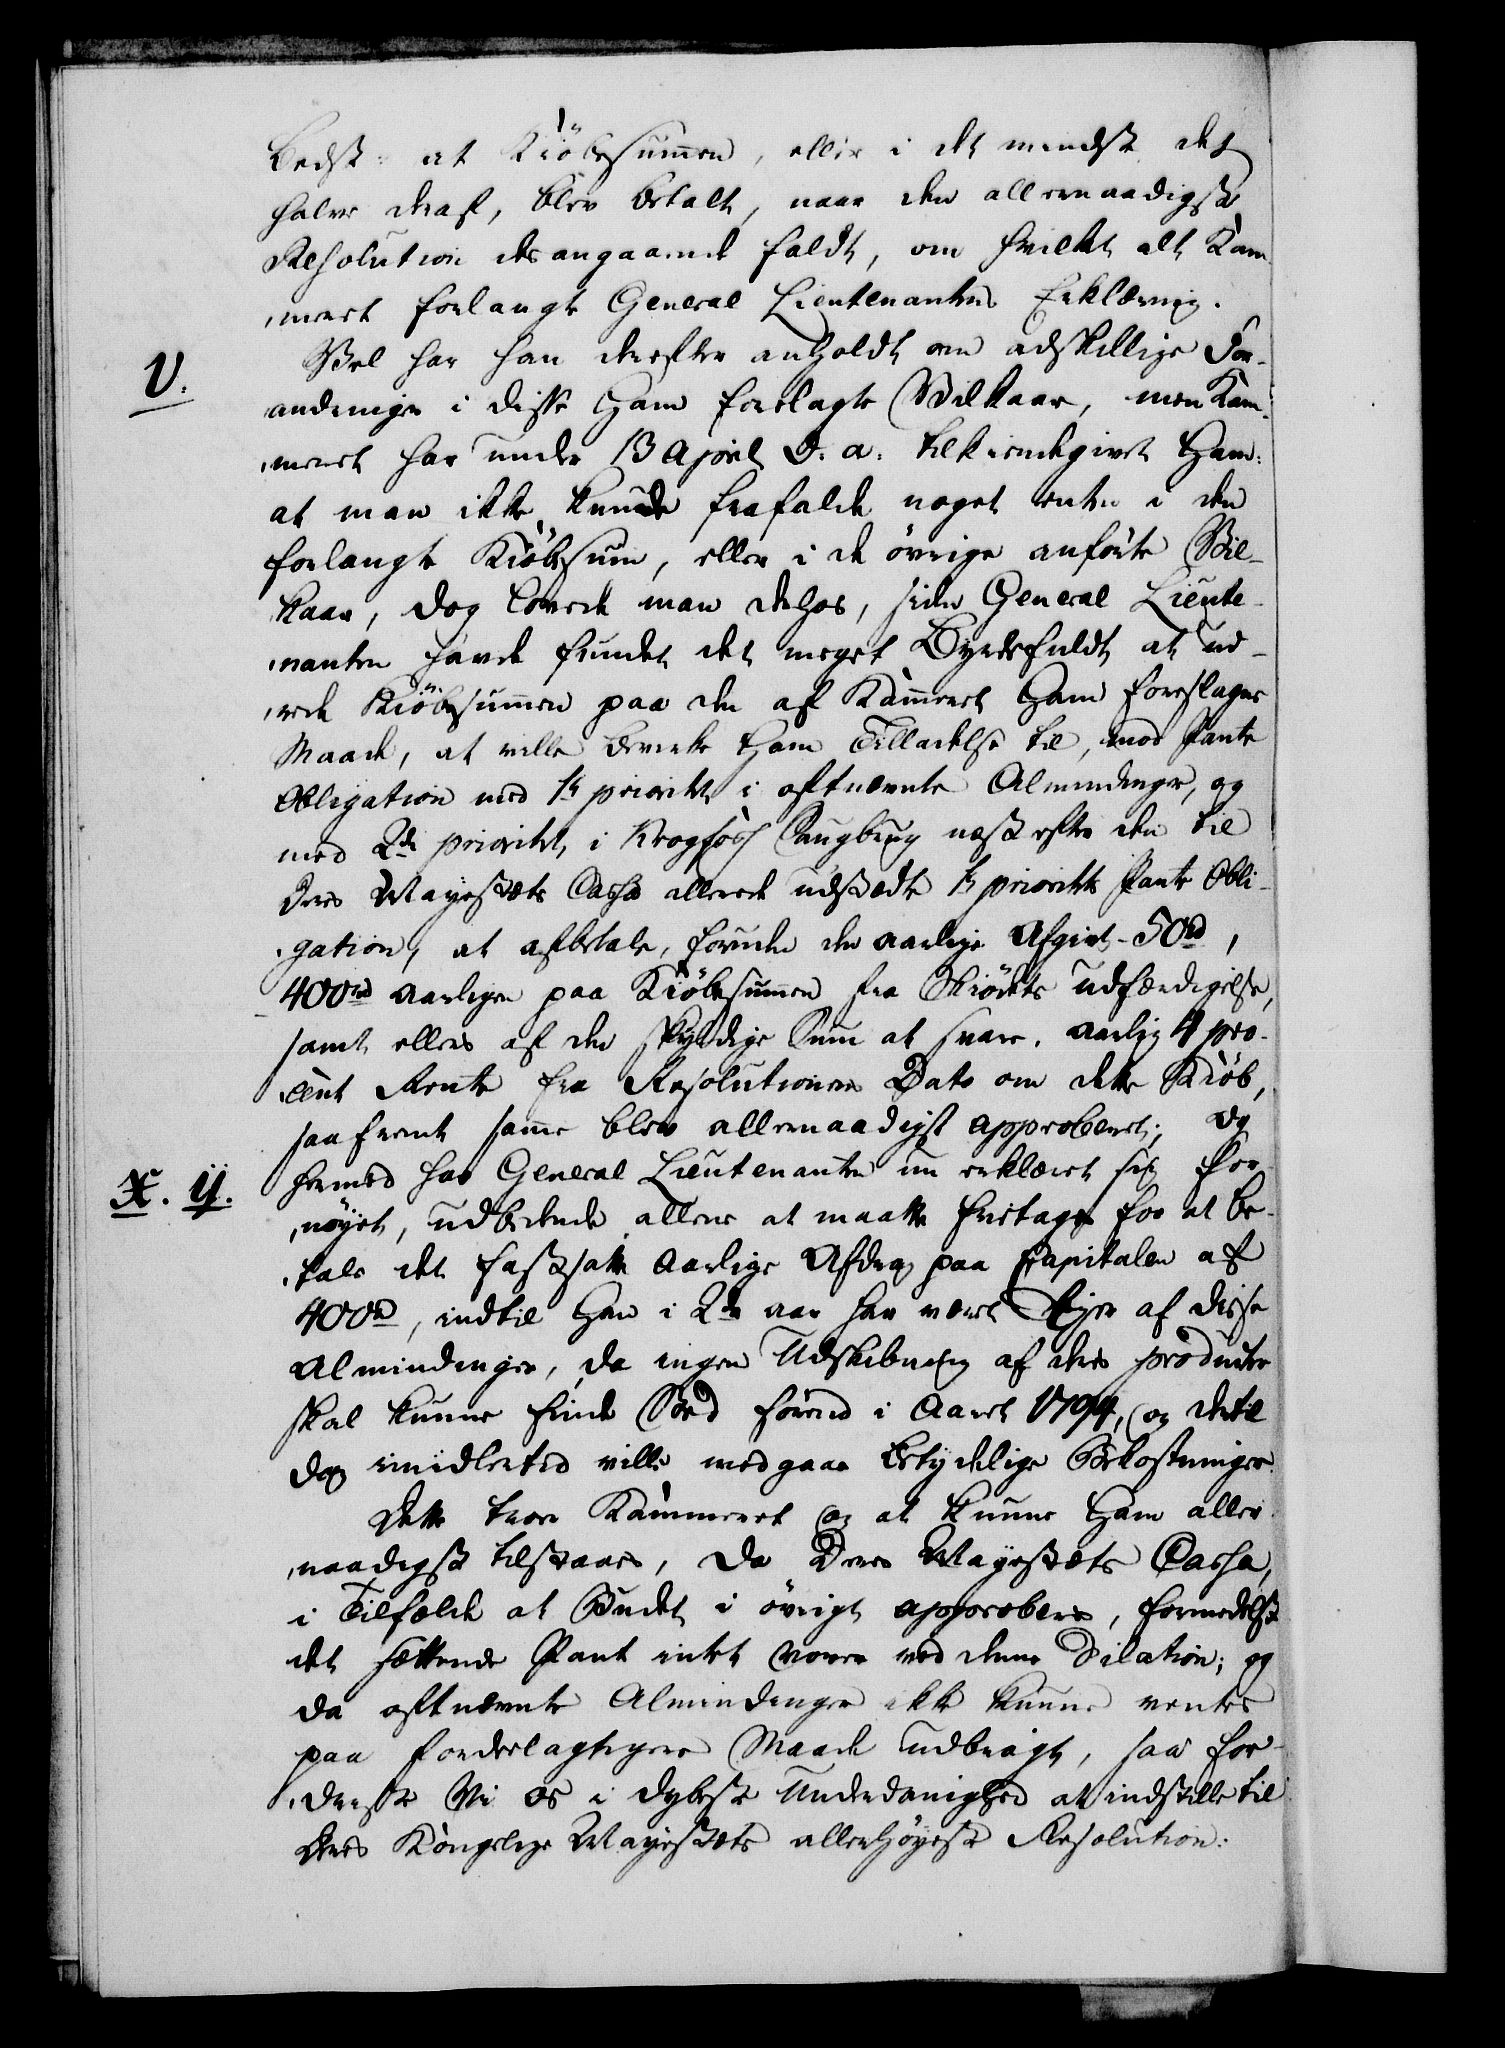 bedst: at Kiöbesummen, eller i det mindste det
halve deraf, blev betalt, naar den allernaadigste
Resolution desangaaende faldt, om hvilket alt Kam-
meret forlangte General Lieutenantens Erklæring.
V. Vel har han derefter anholdt om adskillige For-
andringer i disse Ham forelagte Vilkaar, men Kam-
meret har under 13 April d. a. tilkiendegivet Ham:
at man ikke kunde frafalde noget enten i den
forlangte Kiöbesum, eller i de övrige anförte Vil-
kaar, dog lovede man derhos, siden General Lieute-
nanten havde fundet det meget Byrdefuldt at ud-
rede Kiöbesummen paa den af Kammeret Ham foreslagne
Maade, at ville bevirke Ham Tilladelse til, mod Pante
Obligation med 1te prioritet i oftnævnte Almindinger, og
med 2den prioritet i Krogfoss Saugbrug næst efter den til
Deres Mayestæts Cassa allerede udstædte 1te prioritets Pante Obli-
gation, at afbetale, foruden den aarlige Afgivt 50rd,
400rd aarligen paa Kiöbesummen fra Skiödets udfærdigelse,
samt ellers af den skyldige Sum at svare aarlig 4 pro-
Cent Rente fra Resolutionens Dato om dette Kiöb,
saafremt samme blev allernaadigst approberet; Og
X. ÿ. hermed har General Lieutenanten nu erklæret sig for-
nöyet, udbedende allene at maatte fritages for at be-
tale det fastsatte aarlige Afdrag paa Capitalen af
400rd, indtil Han i 2de aar har været Ejer af disse
Almindinger, da ingen Udskibning af deres producter
skal kunne finde Sted förend i Aaret 1794, og dertil
dog imidlertid ville medgaae betydelige Bekostninger.
Dette troer Kammeret og at kunne Ham aller-
naadigst tilstaaes, da Deres Mayestæts Cassa,
i Tilfælde at Budet i övrigt approberes, formedelst
det hæftende Pant intet vover ved denne Dilation; og
da oftnævnte Almindinger ikke kunne ventes
paa fordeelagtigere Maade udbragt, saa for-
driste Vi os i dybeste Underdanighed at indstille til
Deres Kongelige Mayestæts allerhöyeste Resolution: